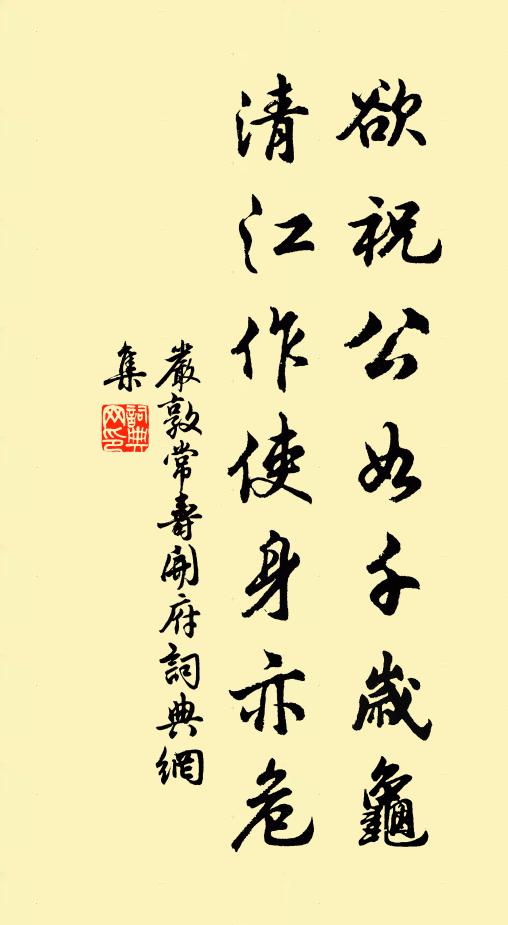 欲祝公如千歲龜
清江作使身亦危
嚴敦常壽開府詞典網
集
詞典網印